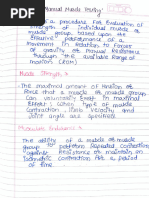 Manual Muscle Testing
is a procedure for evaluation of
strength of individual muscle or
muscle group, based upon the
Effective performance of a
movement in relation to forces
of gravity or Manual resistance
through the available Range of
motion (ROM)
Muscle Strength :-
The maximal amount of tension or
force that a muscle or muscle group
can voluntarily exert in maximal
effort; when type of muscle
contraction, limb velocity and
joint angle are specified
Muscular Endurance :-
The ability of a muscle or muscle
group to perform repeated contraction
against resistance or maintain an
isometric contraction for a period
of time.